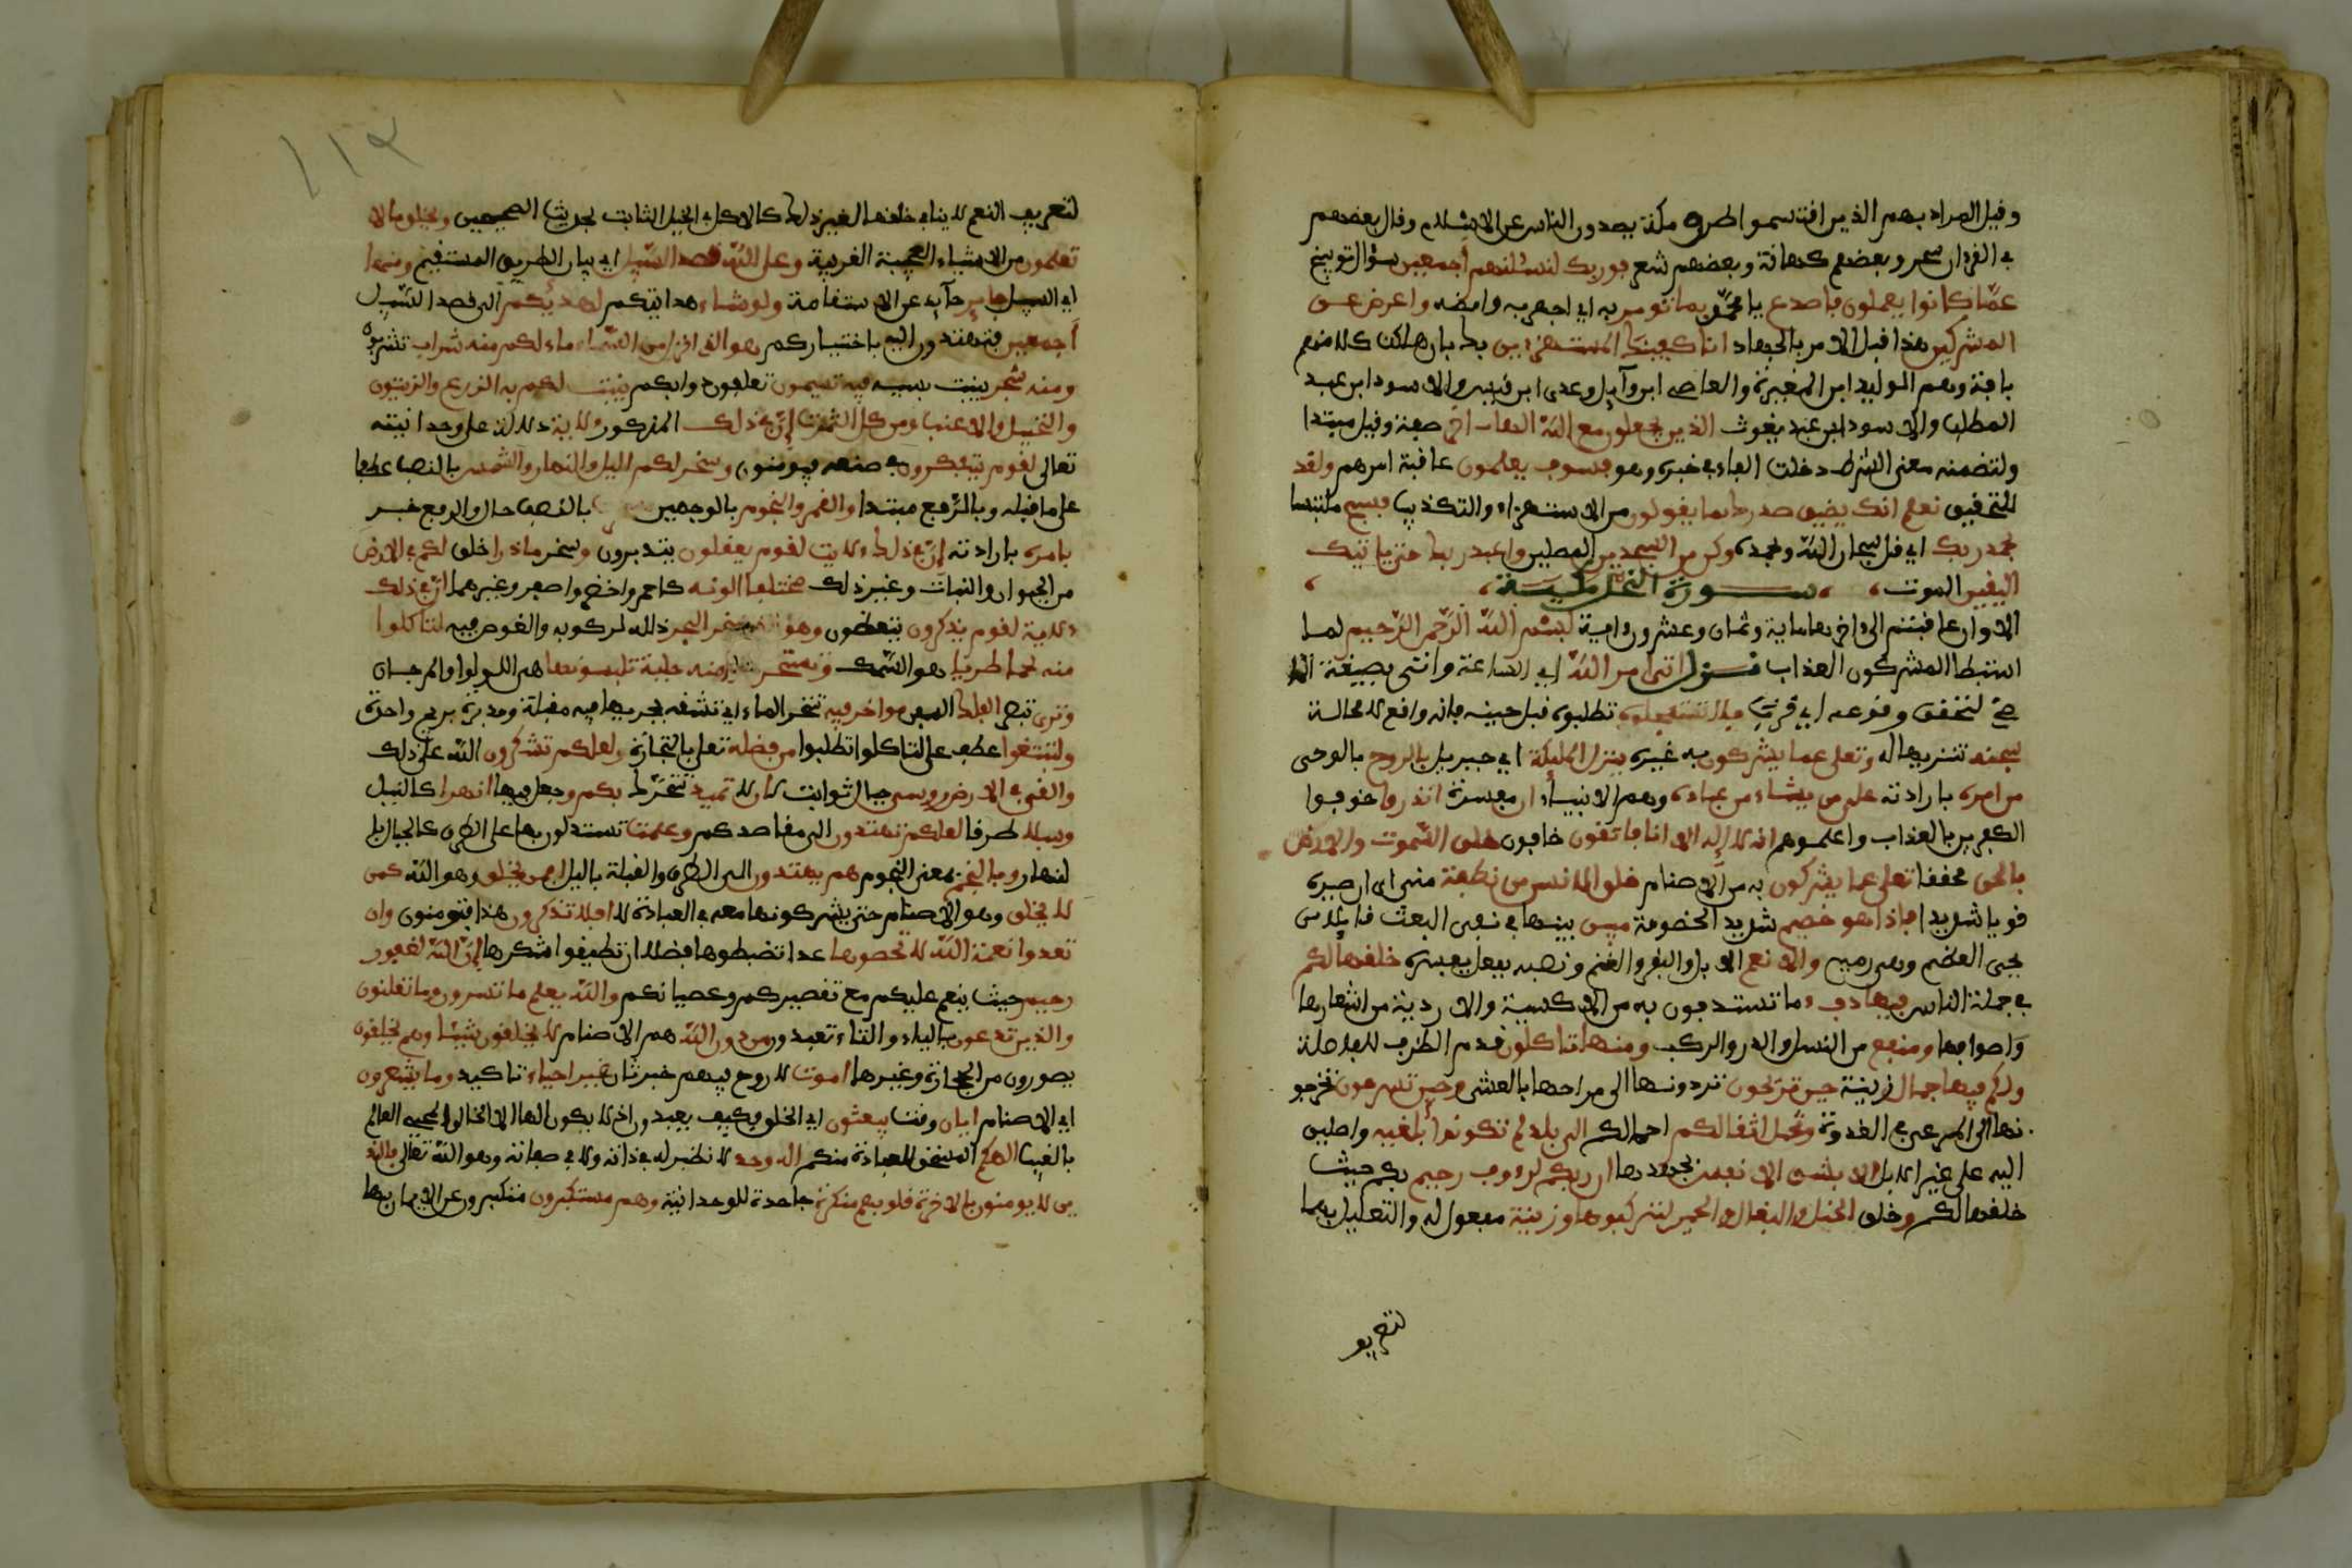 وقيل المراد بهم الذين اقتسموا طرق مكة يصدون الناس عن الاسلام وقال بعضهم
في القرءان سحر وبعضهم كهانة وبعضهم شعر فوربك لنسئلنهم أجمعين سؤال توبيخ
عمّا كانوا يعملون فاصدع يا محمّد بما تومر به اي اجهر به وامضه واعرض عن
المشركين هذا قبل الامر بالجهاد انا كفيناك المستهزءين بك بان اهلكت كلا منهم
بافة وهم الوليد ابن المغيرة والعاصى ابن وآيل وعدى ابن قيس والاسود ابن عبد
المطلب والاسود ابن عبد يغوث الذين يجعلون مع اللّه الها اخر صفة وقيل مبتدا
ولتضمنه معنى الشرط دخلت الفاء في خبره وهو فسوف يعلمون عاقبة امرهم ولقد
للتحقيق نعلم انك يضيق صدرك بما يقولون من الاستهزاء والتكذيب فسبح ملتبسا
بحمد ربك اي قل سبحان اللّه وبحمده وكن من السجدين المصلين واعبد ربك حتى ياتيك
اليقين الموت سورة النحل مكية
الا وان عاقبتم الى اخرها ماية وثمان وعشرون اية بسم اللّه الرّحمن الرّحيم لما
استبطا المشركون العذاب نزل اتى امر اللّه اي الساعة واتى بصيغة الما
ضي لتحقق وقوعه اي قرب فلا تستعجلوه تطلبوه قبل حينه فانه واقع لا محالة
سبحنه تنزيها له وتعلى عما يشركون به غيره ينزل الملئكة اي جبريل بالروح بالوحى
من امره بارادته على من يشاء من عباده وهم الانبياء ان مفسرة انذروا خوفوا
الكفرين بالعذاب واعلموهم انه لا إله الا انا فاتقون خافون خلق السّموت والارض
بالحق محققا تعلى عما يشركون به من الاصنام خلق الانسن من نطفة منى الى ان صيره
قويا شديدا فاذا هو خصيم شديد الخصومة مبين بينها في نفى البعث قايلا من
يحى العظم وهى رميم والانعم الابل والبقر والغنم ونصبه بفعل يفسره خلقها لكم
في جملة الناس فيها دفء ما تستدفون به من الاكسية والاردية من اشعارها
واصوافها ومنفع من النسل والدر والركب ومنها تاكلون قدم الظرف للفاصلة
ولكم فيها جمال زينة حين تريحون تردونها الى مراحها بالعشى وحين تسرحون تخرجو
نها الى المرعى في الغدوة وتحمل اثقالكم احمالكم الى بلد لم تكونوا بلغيه واصلين
اليه على غير الابل الا بشق الانفس بجهدها ان ربكم لرءوف رحيم بكم حيث
خلقها لكم وخلق الخيل والبغال والحمير لتركبوها وزينة مفعول له والتعليل بهما
لتعريف
١١٢
لتعريف النعم لا ينافي خلقها لغير ذلك كالاكل في الخيل الثابت بحديث الصحيحين ويخلق ما لا
تعلمون من الاشياء العجيبة الغريبة وعلى اللّه قصد السّبيل اي بيان الطريق المستقيم ومنها
اي السبيل جاير حآيد عن الاستقامة ولو شاء هدايتكم لهديكم الى قصد السّبيل
أجمعين فتهتدون اليه باختياركم هو الذي انزل من السّماء ماء لكم منه شراب تشربوه
ومنه شجر ينبت بسببه فيه تسيمون تعلفون دوابكم ينبت لكم به الزرع والزيتون
والنخيل والاعنب ومن كل الثمرت إنّ في ذلك المذكور لاية دلالة على وحدانيته
تعالى لقوم يتفكرون في صنعه فيومنون وسخر لكم اليل والنهار والشمس بالنصب عطفا
على ما قبله وبالرّفع مبتدا والقمر والنجوم بالوجهين بالنصب حال والرفع خبر
بامره بارادته إنّ في ذلك لايت لقوم يعقلون يتدبرون وسخر ما ذرا خلق لكم في الارض
من الحيوان والنبات وغير ذلك مختلفا الونه كاحمر واخضر واصفر وغيرهما انّ في ذلك
لاية لقوم يذكرون يتعظون وهو الذي سخر البحر ذلله لركوبه والغوص فيه لتاكلوا
منه لحما طريا هو السّمك وتستخرجوا منه حلية تلبسونها هى اللولوا والمرجان
وترى تبصر الفلك السفن مواخر فيه تمخر الماء اي تشقه بجريها فيه مقبلة ومدبرة بريح واحدة
ولتبتغوا عطف على لتاكلوا تطلبوا من فضله تعلى بالتجارة ولعلكم تشكرون اللّه على ذلك
والقى في الارض روسى جبال ثوابت ان لا تميد تتحرّك بكم وجعل فيها انهرا كالنيل
وسبلا طرقا لعلكم تهتدون الى مقاصدكم وعلمت تستدلون بها على الطرق كالجبال بال
لنهار وبالنجم بمعنى النجوم هم يهتدون الى الطرق والقبلة باليل افمن يخلق وهو اللّه كمن
لا يخلق وهو الاصنام حتى يشركونها معه في العبادة لا افلا تذكرون هذا فتومنون وان
تعدوا نعمة اللّه لا تحصوها عدا تضبطوها فضلا ان تطيقوا شكرها إنّ اللّه لغفور
رحيم حيث ينعم عليكم مع تقصيركم وعصيانكم واللّه يعلم ما تسرون وما تعلنون
والذين تدعون بالياء والتاء تعبدون من دون اللّه هم الاصنام لا يخلقون شيئا وهم يخلقون
يصورون من الحجارة وغيرها اموت لا روح فيهم خبر ثان غير احياء تاكيد وما يشعرون
اي الاصنام ايان وقت يبعثون اي الخلق فكيف يعبدون اذ لا يكون الها الا الخالق المحيى العالم
بالغيب الهكم المستحق للعبادة منكم اله وحد لا نظير له في ذاته ولا في صفاته وهو اللّه تعالى فالذ
ين لا يومنون بالاخرة قلوبهم منكرة جاحدة للوحدانية وهم مستكبرون متكبرون عن الايمان بها